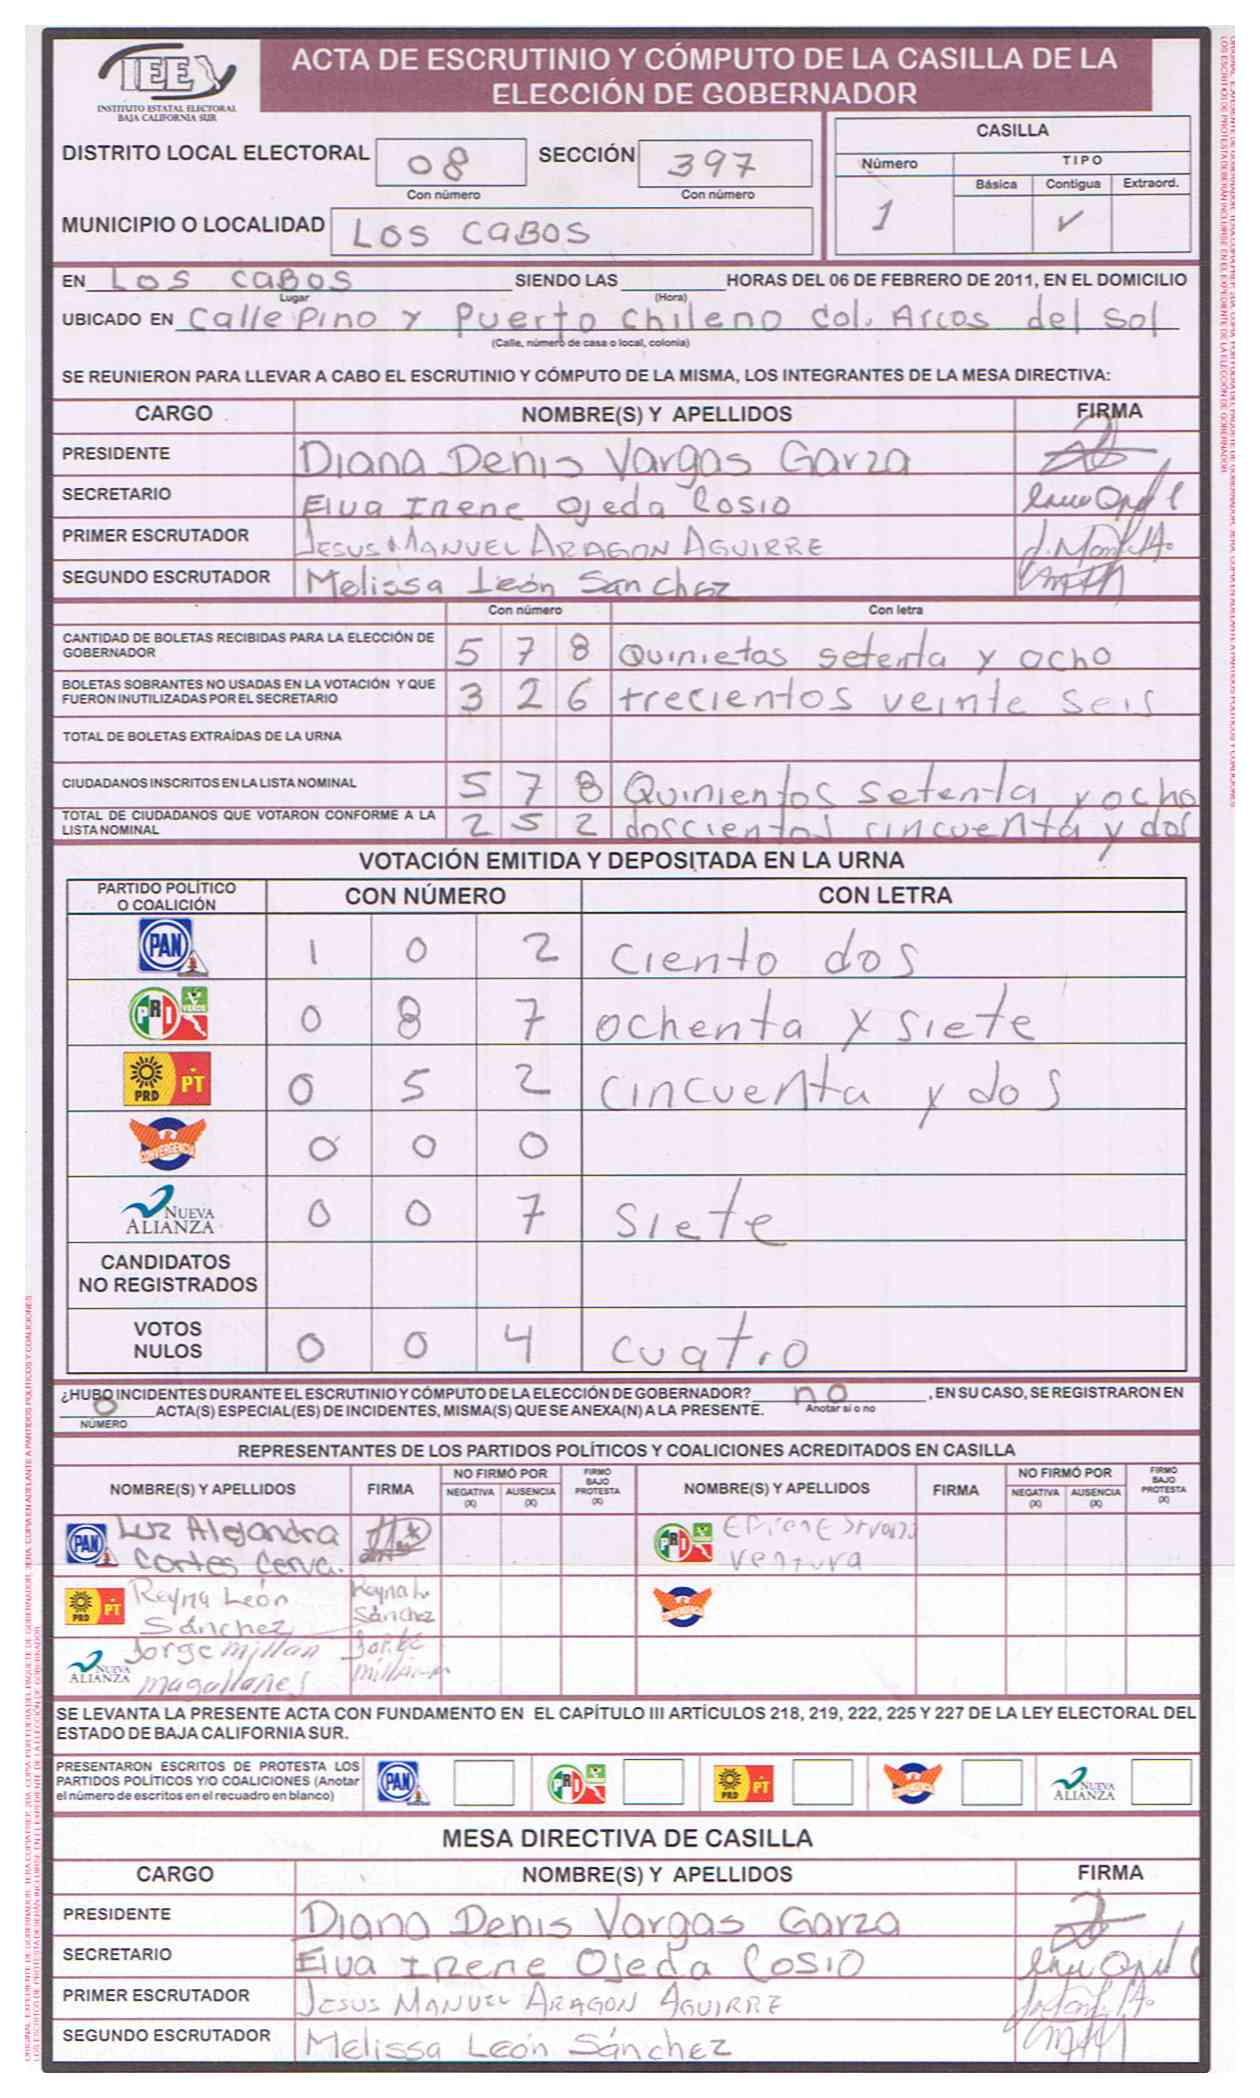 IEE
INSTITUTO ESTATAL ELECTORAL
BAJA CALIFORNIA SUR
ACTA DE ESCRUTINIO Y CÓMPUTO DE LA CASILLA DE LA
ELECCIÓN DE GOBERNADOR
DISTRITO LOCAL ELECTORAL 08 SECCIÓN 397
Con número Con número
MUNICIPIO O LOCALIDAD LOS CABOS
CASILLA
Número TIPO
Básica Contigua Extraord.
1 ✓
EN LOS CABOS SIENDO LAS HORAS DEL 06 DE FEBRERO DE 2011, EN EL DOMICILIO
Lugar (Hora)
UBICADO EN Calle Pino y Puerto Chileno Col. Arcos del Sol
(Calle, número de casa o local, colonia)
SE REUNIERON PARA LLEVAR A CABO EL ESCRUTINIO Y CÓMPUTO DE LA MISMA, LOS INTEGRANTES DE LA MESA DIRECTIVA:
CARGO NOMBRE(S) Y APELLIDOS FIRMA
PRESIDENTE Diana Denis Vargas Garza
SECRETARIO Elva Irene Ojeda Cosio
PRIMER ESCRUTADOR JESUS MANUEL ARAGON AGUIRRE
SEGUNDO ESCRUTADOR Melissa León Sanchez
Con número Con letra
CANTIDAD DE BOLETAS RECIBIDAS PARA LA ELECCIÓN DE
GOBERNADOR 5 7 8 Quinietos setenta y ocho
BOLETAS SOBRANTES NO USADAS EN LA VOTACIÓN Y QUE
FUERON INUTILIZADAS POR EL SECRETARIO 3 2 6 trecientos veinte seis
TOTAL DE BOLETAS EXTRAÍDAS DE LA URNA
CIUDADANOS INSCRITOS EN LA LISTA NOMINAL 5 7 8 Quinientos setenta y ocho
TOTAL DE CIUDADANOS QUE VOTARON CONFORME A LA
LISTA NOMINAL 2 5 2 doscientos cincuenta y dos
VOTACIÓN EMITIDA Y DEPOSITADA EN LA URNA
PARTIDO POLÍTICO
O COALICIÓN CON NÚMERO CON LETRA
PAN 1 0 2 ciento dos
PRI VERDE 0 8 7 ochenta y siete
PRD PT 0 5 2 cincuenta y dos
CONVERGENCIA 0 0 0
NUEVA
ALIANZA 0 0 7 siete
CANDIDATOS
NO REGISTRADOS
VOTOS
NULOS 0 0 4 cuatro
¿HUBO INCIDENTES DURANTE EL ESCRUTINIO Y CÓMPUTO DE LA ELECCIÓN DE GOBERNADOR? no , EN SU CASO, SE REGISTRARON EN
0 ACTA(S) ESPECIAL(ES) DE INCIDENTES, MISMA(S) QUE SE ANEXA(N) A LA PRESENTE. Anotar si o no
NÚMERO
REPRESENTANTES DE LOS PARTIDOS POLÍTICOS Y COALICIONES ACREDITADOS EN CASILLA
NOMBRE(S) Y APELLIDOS FIRMA NO FIRMÓ POR NEGATIVA (X) AUSENCIA (X) FIRMÓ BAJO PROTESTA (X) NOMBRE(S) Y APELLIDOS FIRMA NO FIRMÓ POR NEGATIVA (X) AUSENCIA (X) FIRMÓ BAJO PROTESTA (X)
PAN Luz Alejandra
Cortes Cerva.
PRI
Ventura
PRD PT Reyna León
Sánchez
Reyna L.
Sánchez
NUEVA
ALIANZA Jorge millan
magallanes
SE LEVANTA LA PRESENTE ACTA CON FUNDAMENTO EN EL CAPÍTULO III ARTÍCULOS 218, 219, 222, 225 Y 227 DE LA LEY ELECTORAL DEL
ESTADO DE BAJA CALIFORNIA SUR.
PRESENTARON ESCRITOS DE PROTESTA LOS
PARTIDOS POLÍTICOS Y/O COALICIONES (Anotar
el número de escritos en el recuadro en blanco)
PAN PRI PRD PT CONVERGENCIA NUEVA ALIANZA
MESA DIRECTIVA DE CASILLA
CARGO NOMBRE(S) Y APELLIDOS FIRMA
PRESIDENTE Diana Denis Vargas Garza
SECRETARIO Elva Irene Ojeda Cosio
PRIMER ESCRUTADOR JESUS MANUEL ARAGON AGUIRRE
SEGUNDO ESCRUTADOR Melissa León Sánchez